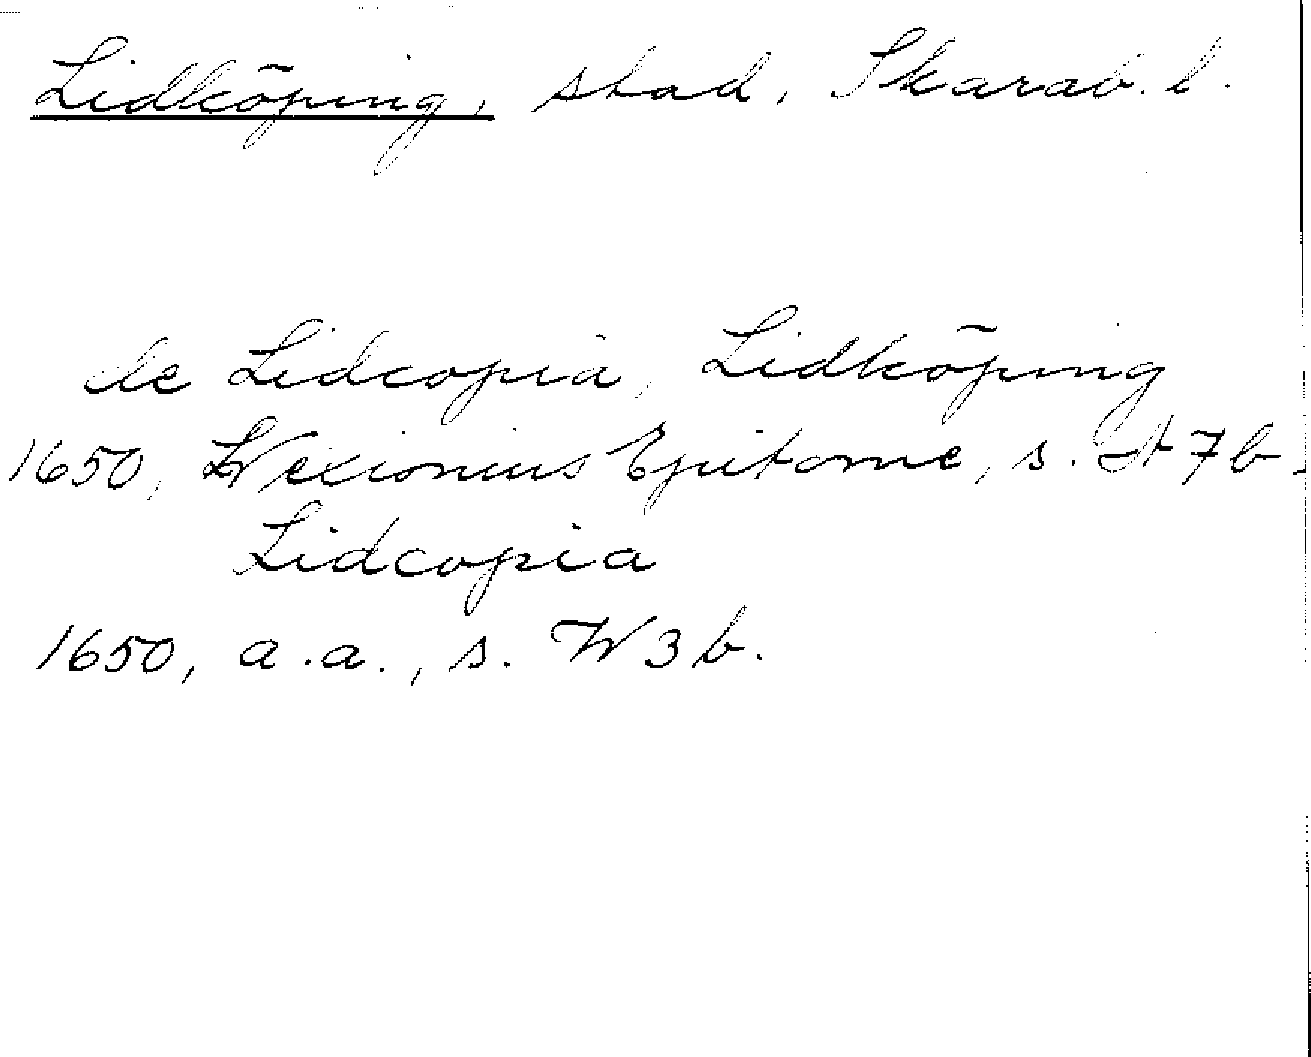 Lidköping, stad, Skarab. l.
de Lidcopia, Lidköping
1650, Wexionius Epitome, s. 7 b.
Lidcopia
1650, a.a., s. W 3 b.